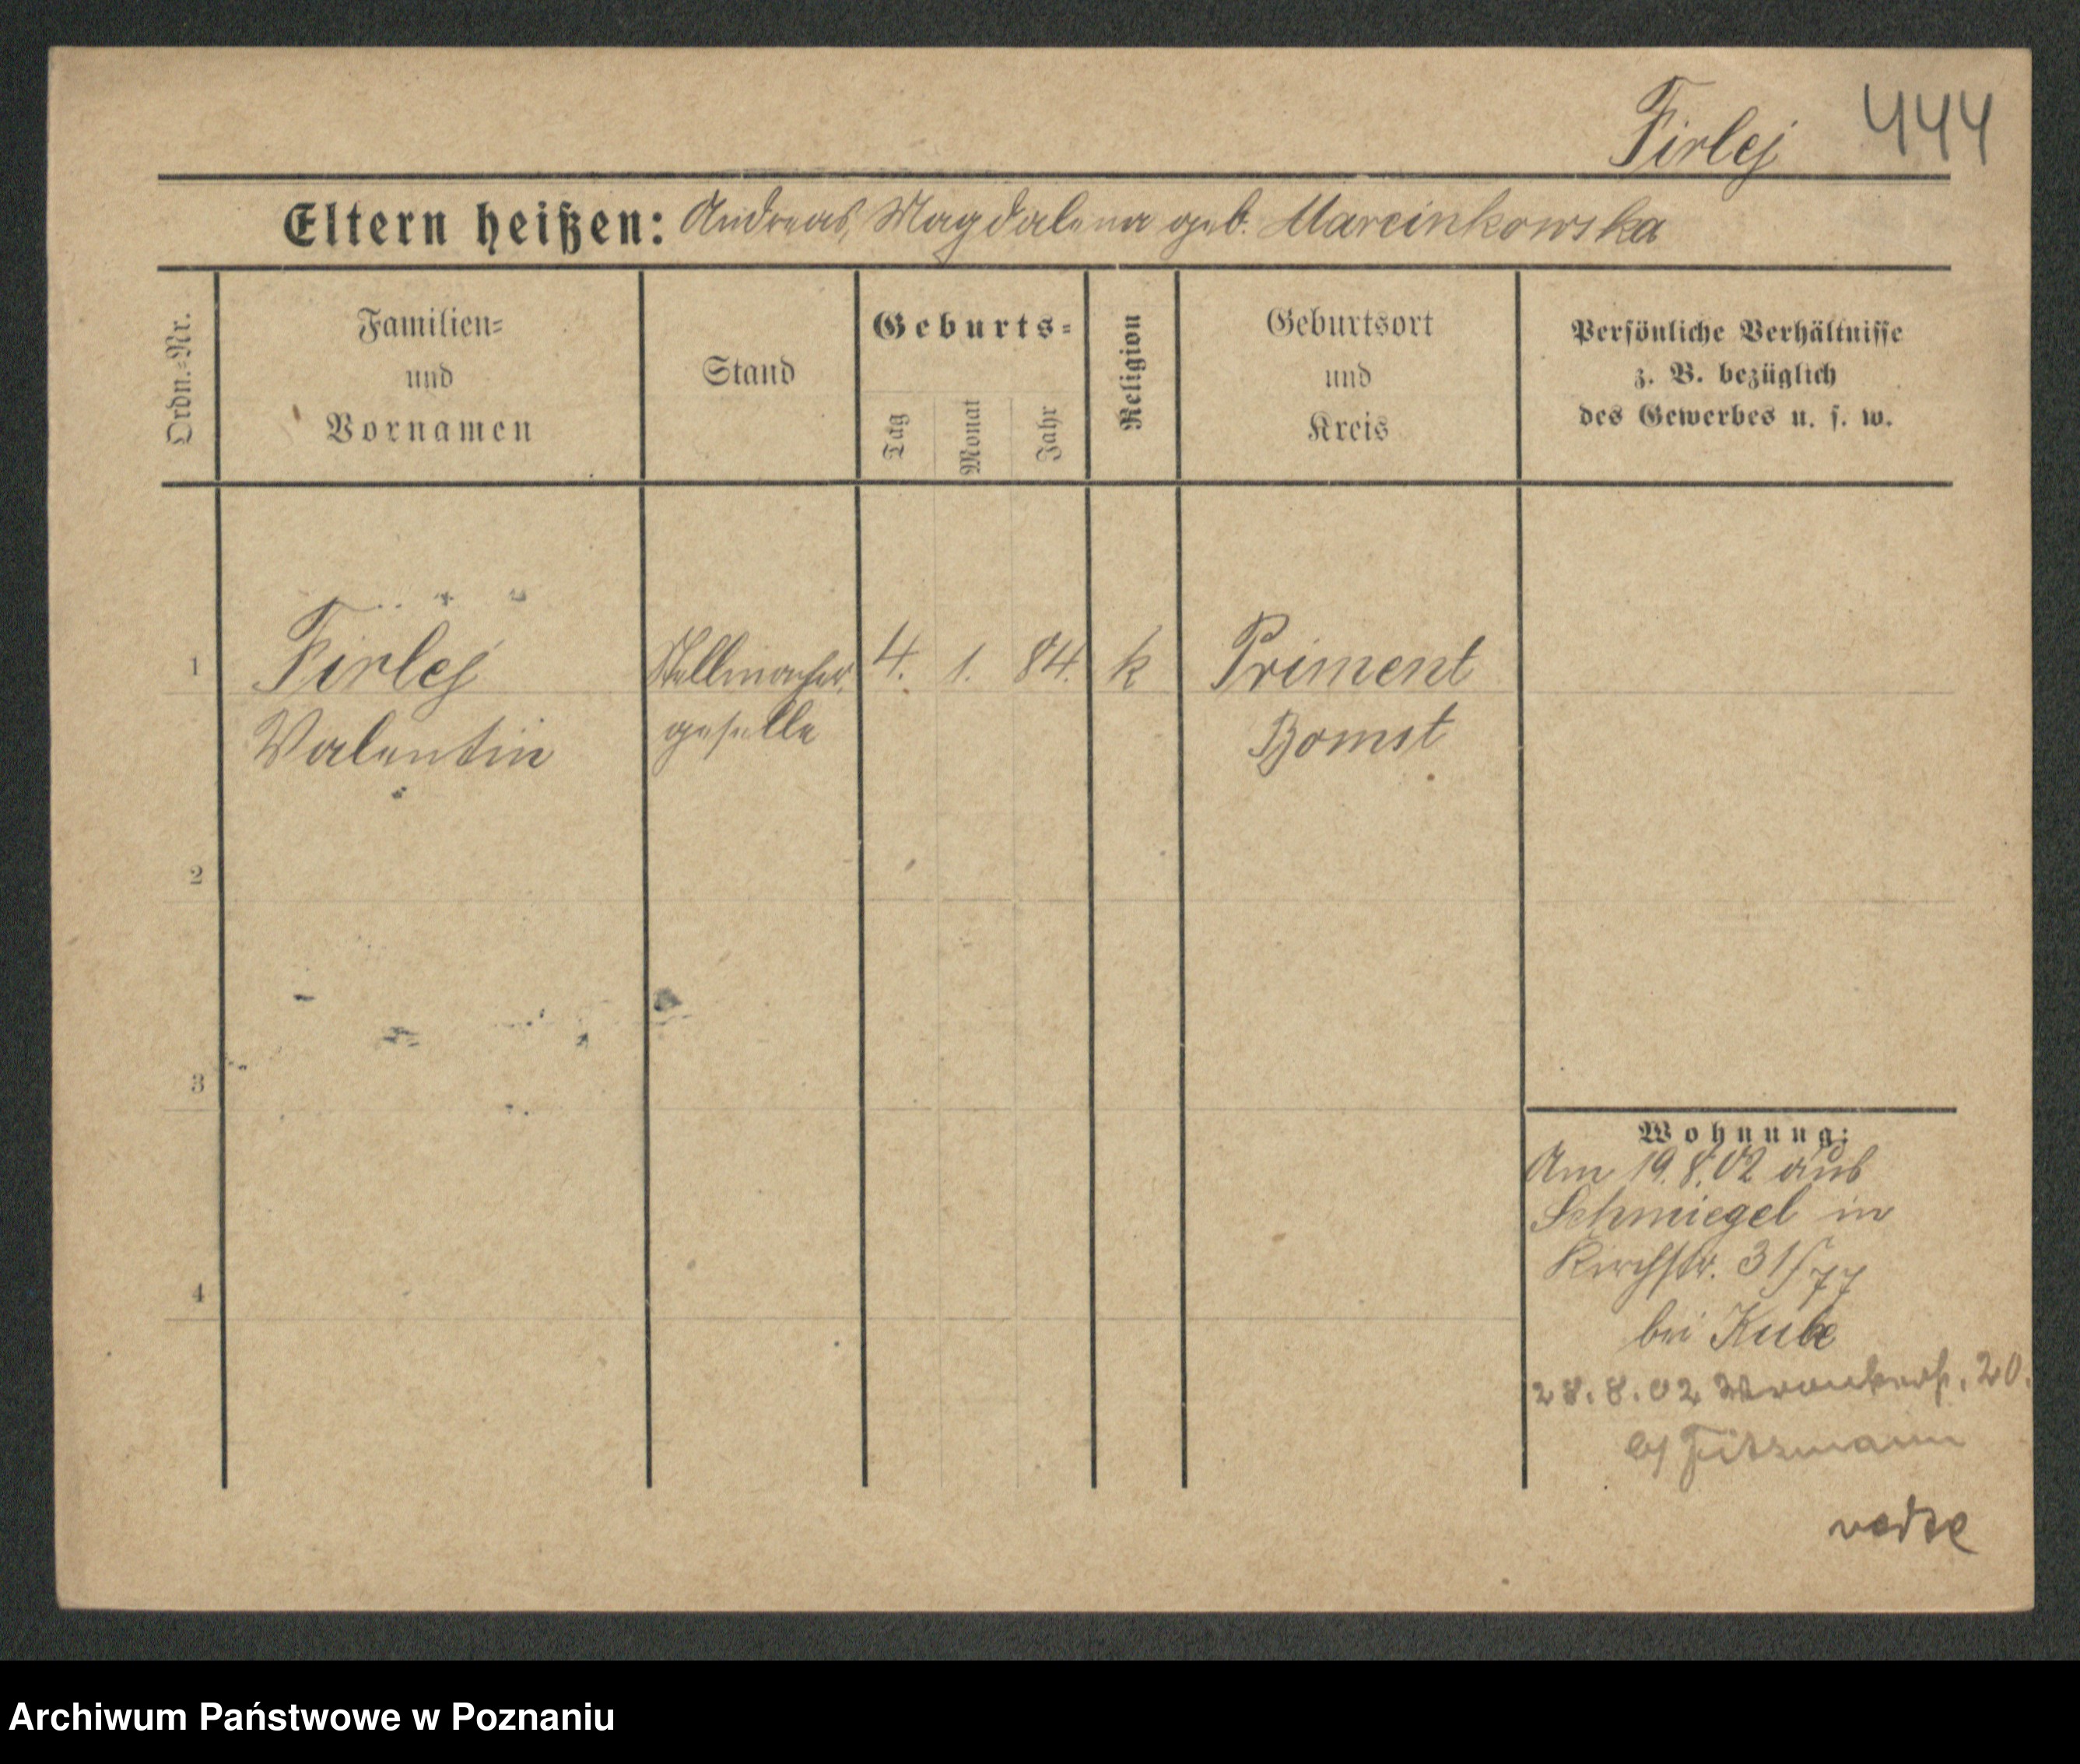 Firlej 444
Eltern heißen: Andreas, Magdalena geb. Marcinkowska
Ordn.=Nr.
Familien=
und
Vornamen
Stand
Geburts=
Tag
Monat
Jahr
Religion
Geburtsort
und
Kreis
Persönliche Verhältnisse
z. B. bezüglich
des Gewerbes u. s. w.
1 Firlej Stellmacher 4. 1. 84. k Priment
Valentin geselle Bomst
2
3
4
Wohnung:
Am 19.8.02 aus
Schmiegel in
Kirchstr. 31/77
bei Kube
28.8.02 20.
Archiwum Państwowe w Poznaniu